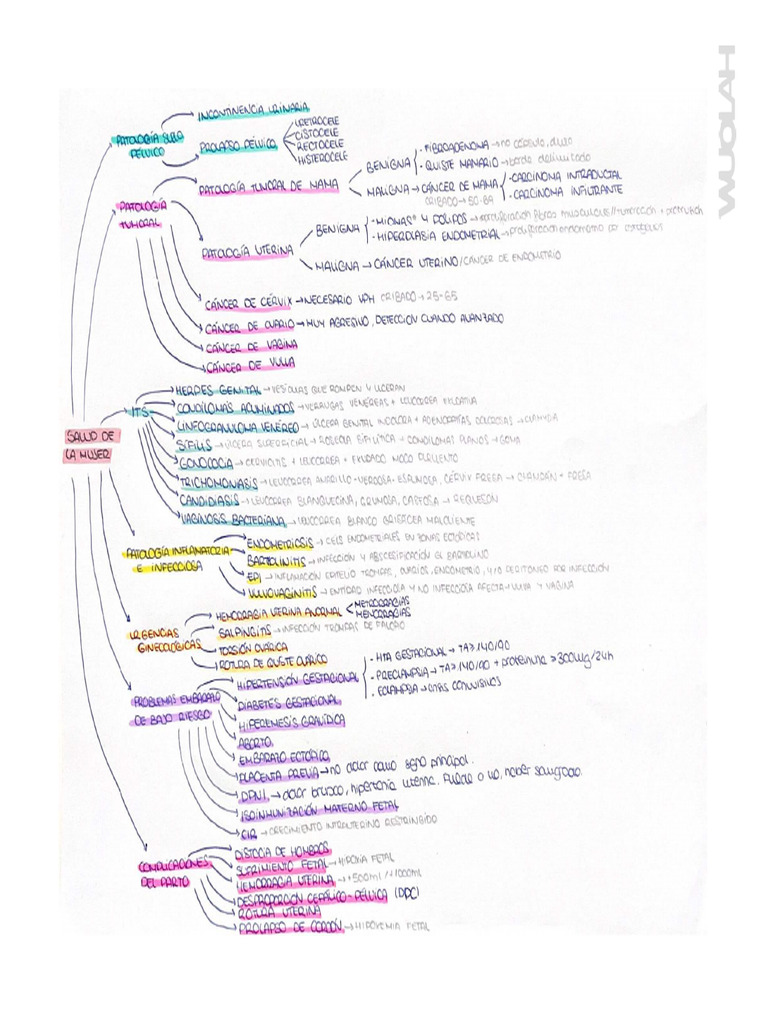 WUOLAH
INCONTINENCIA URINARIA
PATOLOGÍA SUELO
PÉLVICO
PROLAPSO PÉLVICO
URETROCELE
CISTOCELE
RECTOCELE
HISTEROCELE
PATOLOGÍA
TUMORAL
PATOLOGÍA TUMORAL DE MAMA
BENIGNA
- FIBROADENOMA → no cápsula, duro
- QUISTE MAMARIO → borde delimitado
MALIGNA → CÁNCER DE MAMA
CRIBADO → 50-69
- CARCINOMA INTRADUCTAL
- CARCINOMA INFILTRANTE
PATOLOGÍA UTERINA
BENIGNA
- MIOMAS Y PÓLIPOS → proliferación fibras musculares // tumoración + protrusión
- HIPERPLASIA ENDOMETRIAL → proliferación endometrio por estrógenos
MALIGNA → CÁNCER UTERINO / CÁNCER DE ENDOMETRIO
CÁNCER DE CÉRVIX → NECESARIO VPH CRIBADO → 25-65
CÁNCER DE OVARIO → MUY AGRESIVO, DETECCIÓN CUANDO AVANZADO
CÁNCER DE VAGINA
CÁNCER DE VULVA
SALUD DE
LA MUJER
ITS
HERPES GENITAL → VESÍCULAS QUE ROMPEN Y ULCERAN
CONDILOMAS ACUMINADOS → VERRUGAS VENÉREAS + LEUCORREA EXUDATIVA
LINFOGRANULOMA VENÉREO → ÚLCERA GENITAL INDOLORA + ADENOPATÍAS DOLOROSAS → CLAMYDIA
SÍFILIS → ÚLCERA SUPERFICIAL → ROSEOLA SIFILÍTICA + CONDILOMAS PLANOS → GOMA
GONOCOCIA → CERVICITIS + LEUCORREA + EXUDADO MOCO PURULENTO
TRICHOMONIASIS → LEUCORREA AMARILLO-VERDOSA, ESPUMOSA, CÉRVIX FRESA →
CANDIDIASIS → LEUCORREA BLANQUECINA, GRUMOSA, CASEOSA → REQUESÓN
VAGINOSIS BACTERIANA → LEUCORREA BLANCO GRISÁCEA MALOLIENTE
PATOLOGÍA INFLAMATORIA
E INFECCIOSA
ENDOMETRIOSIS → CELS ENDOMETRIALES EN ZONAS ECTÓPICAS
BARTOLINITIS → INFECCIÓN Y ABSCESIFICACIÓN GL BARTOLINO
EPI → INFLAMACIÓN EPITELIO TROMPAS, OVARIOS, ENDOMETRIO, Y/O PERITONEO POR INFECCIÓN
VULVOVAGINITIS → ENTIDAD INFECCIOSA Y NO INFECCIOSA AFECTA → VULVA Y VAGINA
URGENCIAS
GINECOLÓGICAS
HEMORRAGIA UTERINA ANORMAL
METRORRAGIAS
MENORRAGIAS
SALPINGITIS → INFECCIÓN TROMPAS DE FALOPIO
TORSIÓN OVÁRICA
ROTURA DE QUISTE OVÁRICO
PROBLEMAS EMBARAZO
DE BAJO RIESGO
HIPERTENSIÓN GESTACIONAL
- HTA GESTACIONAL → TA ≥ 140/90
- PRECLAMPSIA → TA ≥ 140/90 + proteinuria ≥ 300mg/24h
- ECLAMPSIA → crisis convulsivas
DIABETES GESTACIONAL
HIPEREMESIS GRAVÍDICA
ABORTO
EMBARAZO ECTÓPICO
PLACENTA PREVIA → no dolor como signo principal.
DPPNI → dolor brusco, hipertonía uterina. Puede o no, haber sangrado.
ISOINMUNIZACIÓN MATERNO FETAL
CIR → CRECIMIENTO INTRAUTERINO RESTRINGIDO
COMPLICACIONES
DEL PARTO
DISTOCIA DE HOMBROS
SUFRIMIENTO FETAL → HIPOXIA FETAL
HEMORRAGIA UTERINA → +500ml // 1000ml
DESPROPORCIÓN CEFÁLICO-PÉLVICA (DPC)
ROTURA UTERINA
PROLAPSO DE CORDÓN → HIPOXEMIA FETAL